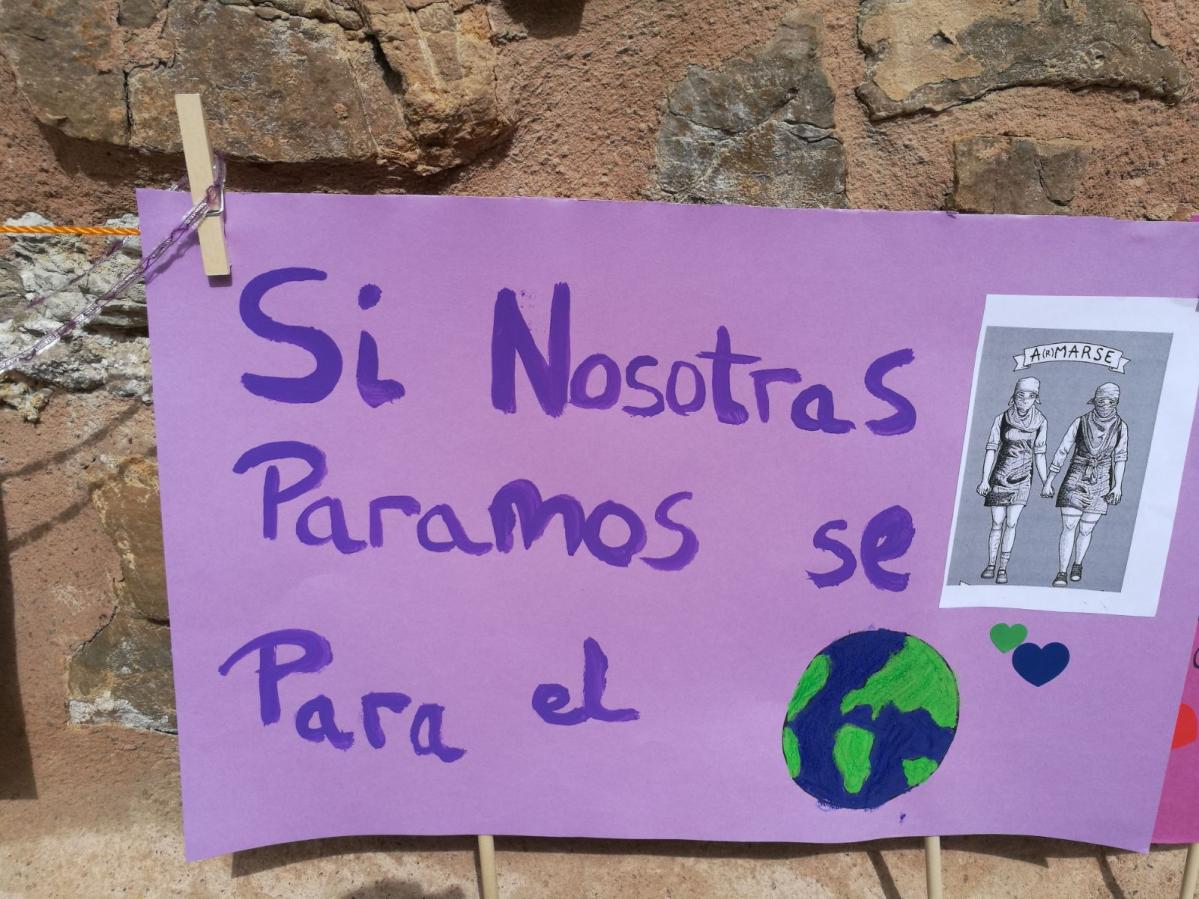 Si Nosotras
Paramos se
Para el
A(R)MARSE